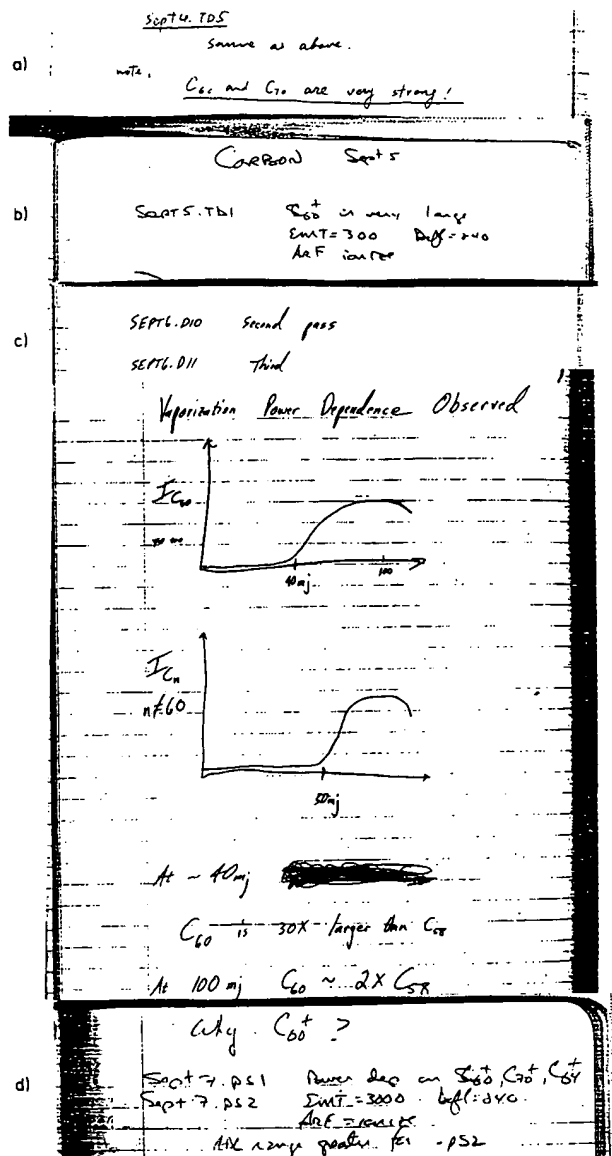 Sept 4. TD5
Same as above.
a)
note.
C60 and C70 are very strong!
CARBON Sept 5
b)
SEPT5.TD1 C60+ is very large
EMT=300 Defl=240
ArF ionize
c)
SEPT6.D10 Second pass
SEPT6.D11 Third
Vaporization Power Dependence Observed
I C60
40mj 100
I Cn
n≠60
50mj
At ~ 40mj
C60 is 30X larger than C58
At 100 mj C60 ~ 2X C58
Why C60+ ?
d)
Sept 7.PS1 Power dep on C60+, C70+, C64+
Sept 7.PS2 EMT=3000 Defl=240
ArF=ionize
range greater for .PS2